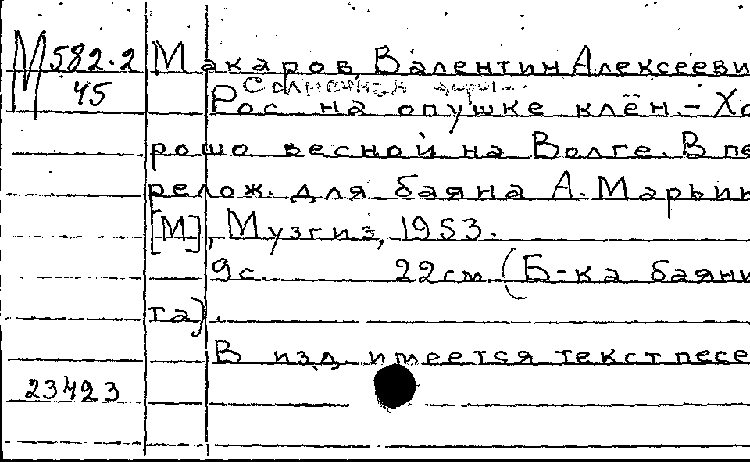 М 582.2 Макаров, Валентин Алексееви
45
Рос на опушке клён. – Хо
рошо весной на Волге. В пе
релож. для баяна А. Марьин
[М], Музгиз, 1953.
9 с. 22 см. (Б-ка баяни
ста).
В изд. имеется текст песе
23423